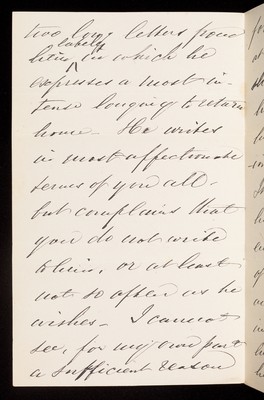 two long letters from
him, lately in which he
expresses a most in-
tense longing to return
home - He writes
in most affectionate
terms of you all -
but complains that
you do not write
to him, or at least
not so often as he
wishes - I cannot
see, for my own part
a sufficient reason